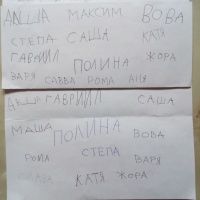 ДАША МАКСИМ ВОВА
СТЕПА САША КАТЯ
ГАВРИИЛ ПОЛИНА ЖОРА
ВАРЯ САВВА РОМА АНЯ
ДАША ГАВРИИЛ САША
МАША ПОЛИНА ВОВА
РОМА СТЕПА ВАРЯ
КАТЯ ЖОРА